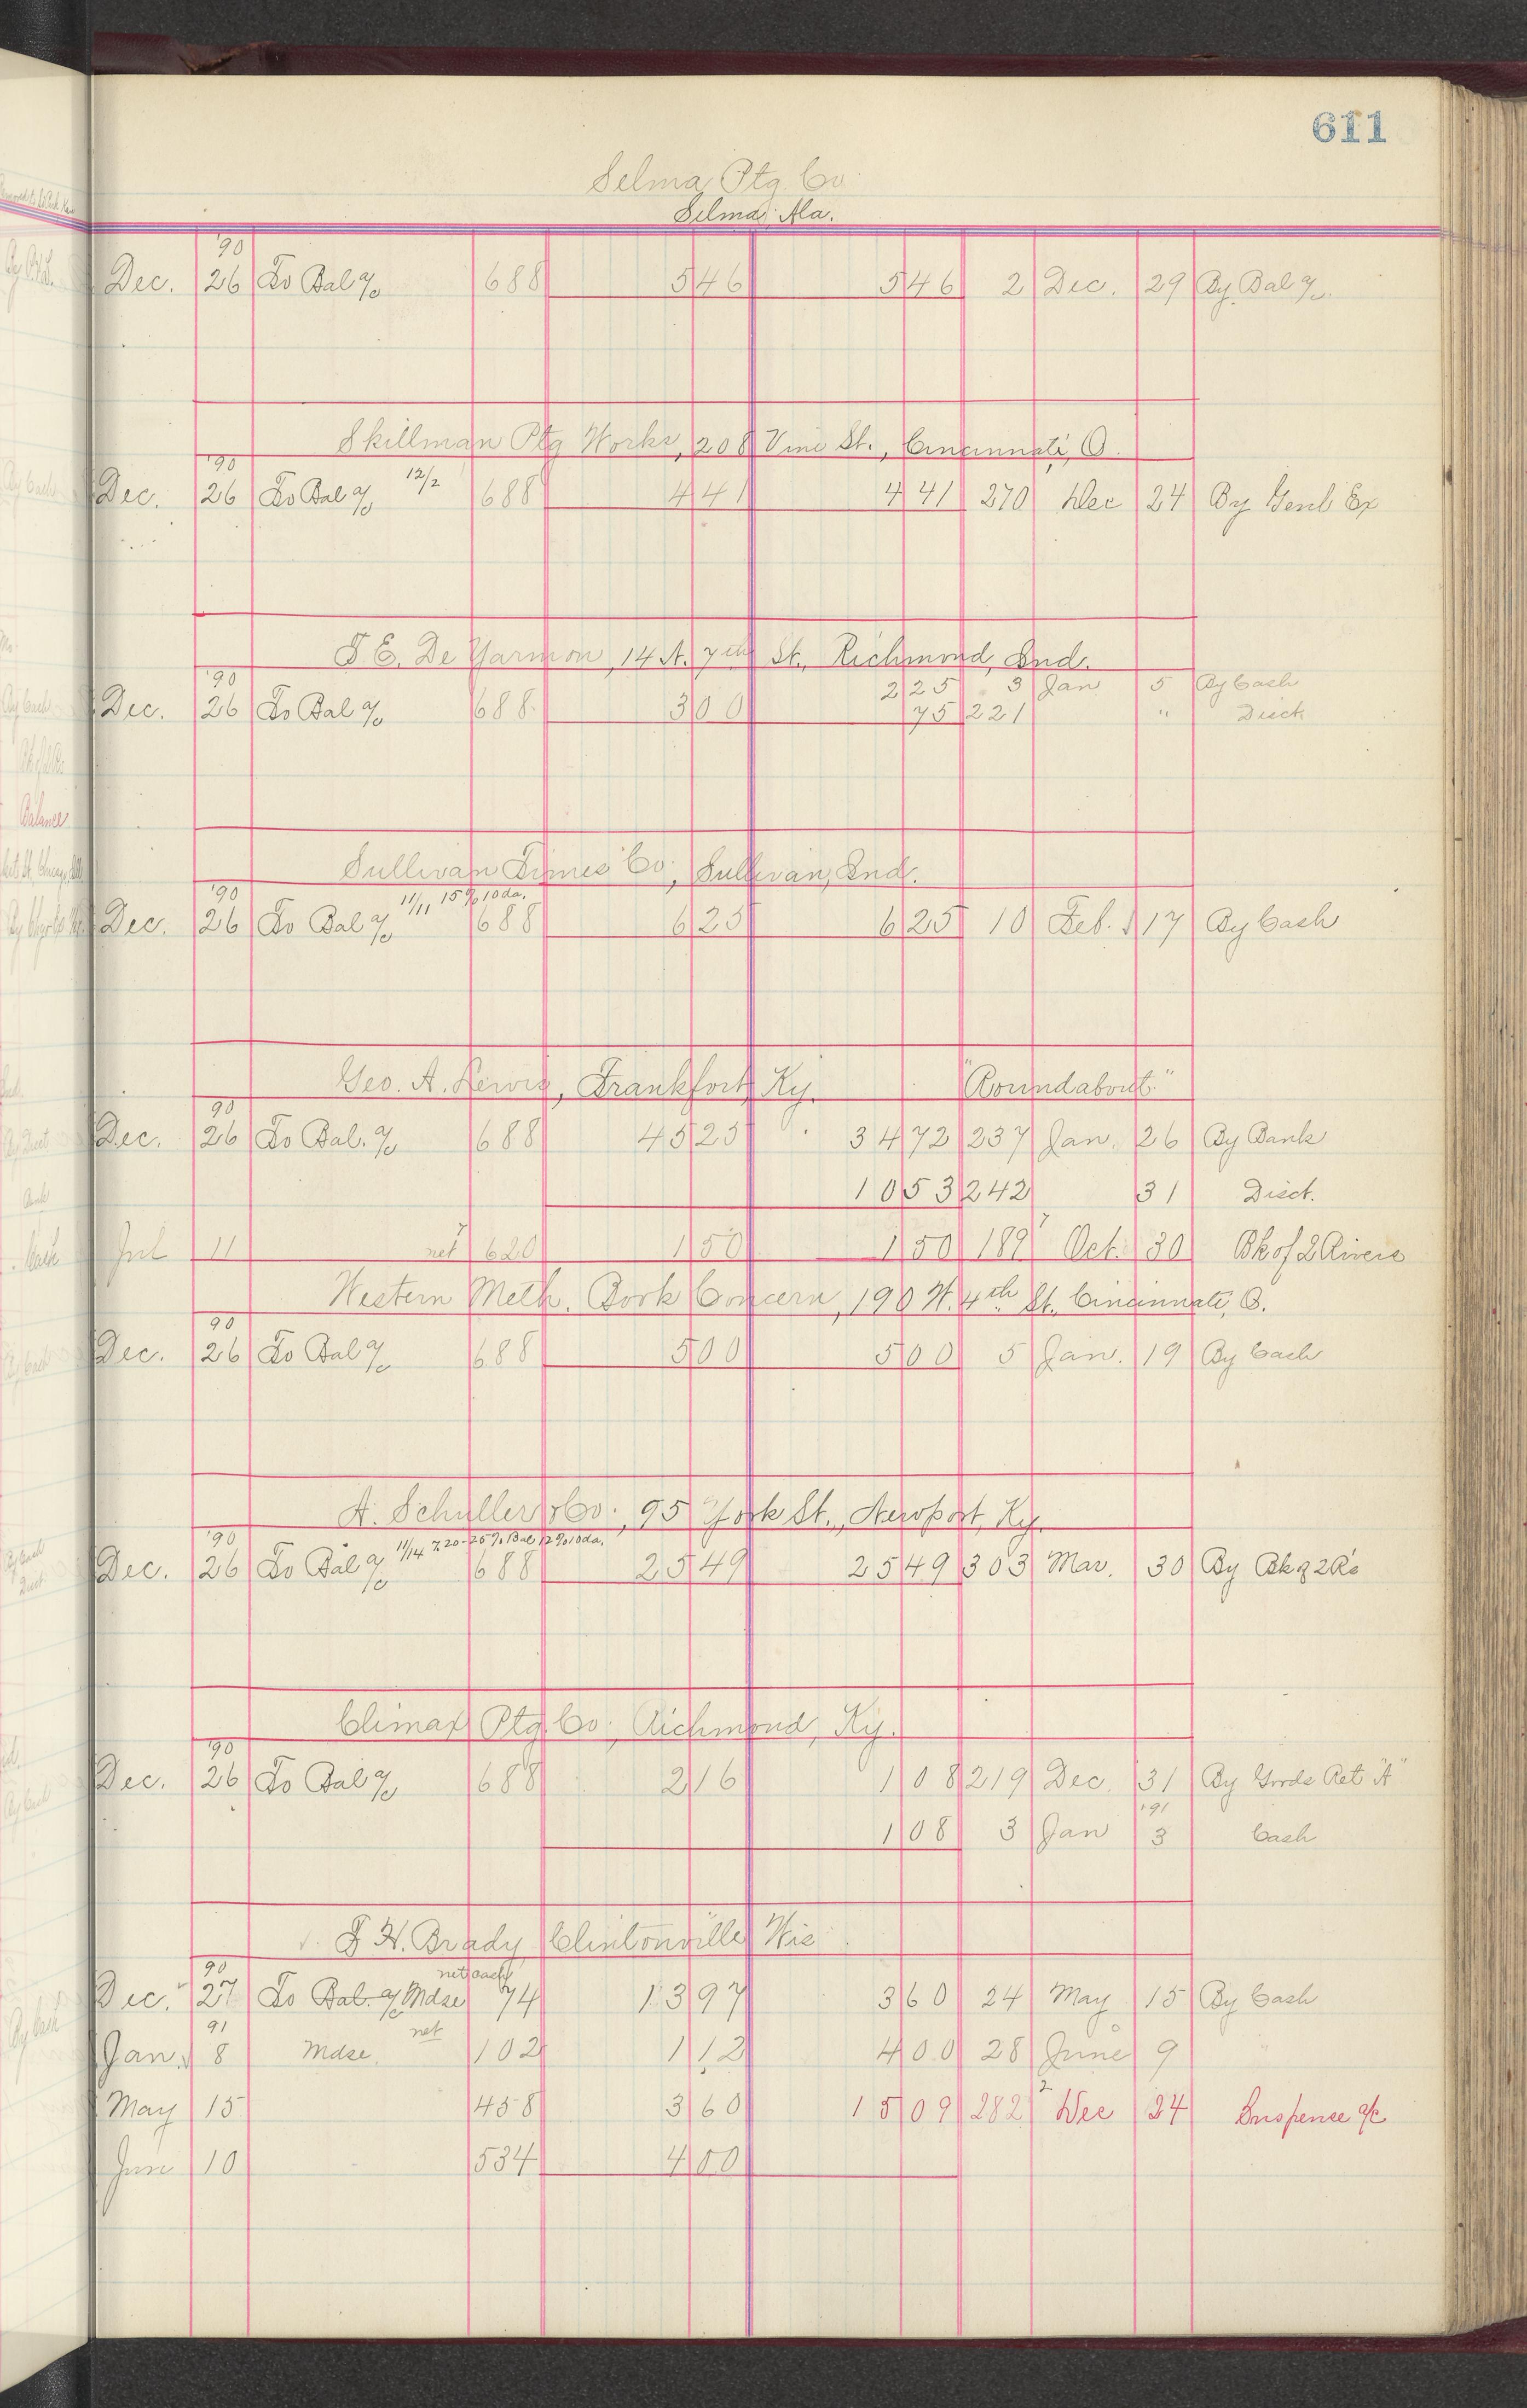 611
Selma Ptg. Co.
Selma, Ala.
'90
Dec. 26 To Bal a/c 688 5 46 5 46 2 Dec. 29 By Bal a/c
Skillman Ptg Works, 208 Vine St., Cincinnati, O.
'90
Dec. 26 To Bal a/c 12/2 688 4 41 4 41 270 Dec 24 By Genl Ex
J. E. De Yarmon, 14 N. 7th St., Richmond, Ind.
'90 2 25 3 Jan 5 By Cash
Dec. 26 To Bal a/c 688 3 00 75 221 " Disct
Sullivan Times Co., Sullivan, Ind.
'90 11/11 15% 10 da.
Dec. 26 To Bal a/c 688 6 25 6 25 10 Feb. 17 By Cash
Geo. A. Lewis, Frankfort, Ky. "Roundabout"
90
Dec. 26 To Bal. a/c 688 45 25 34 72 237 Jan. 26 By Bank
10 53 242 31 Disct.
Jul 11 net 7 620 1 50 1 50 189 7 Oct. 30 Bk of 2 Rivers
Western Meth. Book Concern, 190 W. 4th St., Cincinnati, O.
90
Dec. 26 To Bal a/c 688 5 00 5 00 5 Jan. 19 By Cash
A. Schuller & Co., 95 York St., Newport, Ky.
'90 11/14 7.20-25% Bal 12% 10 da.
Dec. 26 To Bal a/c 688 25 49 25 49 303 Mar. 30 By Bk of 2 R's
Climax Ptg. Co., Richmond, Ky.
'90
Dec. 26 To Bal a/c 688 2 16 1 08 219 Dec. 31 By Goods Ret "A"
'91
1 08 3 Jan 3 Cash
J. H. Brady Clintonville Wis
90 net cash
Dec. 27 To Bal. a/c Mdse 74 13 97 3 60 24 May 15 By Cash
91 net
Jan. 8 Mdse. 102 1 12 4 00 28 June 9 "
May 15 458 3 60 15 09 282 2 Dec 24 Suspense a/c
Jun 10 534 4 00